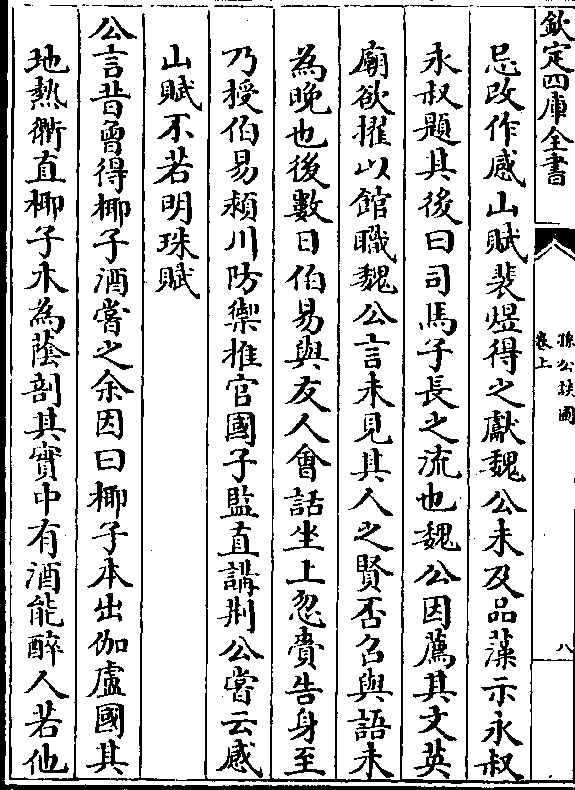 欽定四庫全書
孫公談圃
卷上
八
忌改作感山賦裴煜得之獻魏公未及品藻示永叔
永叔題其後曰司馬子長之流也魏公因薦其文英
廟欲擢以館職魏公言未見其人之賢否召與語未
為晚也後數日伯易與友人會話坐上忽賫告身至
乃授伯易潁川防禦推官國子監直講荆公嘗云感
山賦不若明珠賦
公言昔曾得椰子酒嘗之余因曰椰子本出伽盧國其
地熱衢直椰子木為蔭剖其實中有酒能醉人若他